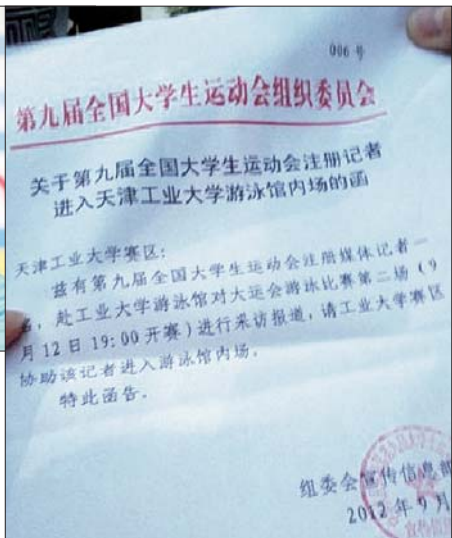 006 号
第九届全国大学生运动会组织委员会
关于第九届全国大学生运动会注册记者
进入天津工业大学游泳馆内场的函
天津工业大学赛区:
兹有第九届全国大学生运动会注册媒体记者一
,赴工业大学游泳馆对大运会游泳比赛第二场(9
月12日19:00开赛)进行采访报道,请工业大学赛区
协助该记者进入游泳馆内场。
特此函告。
组委会宣传信息部
2012年9月